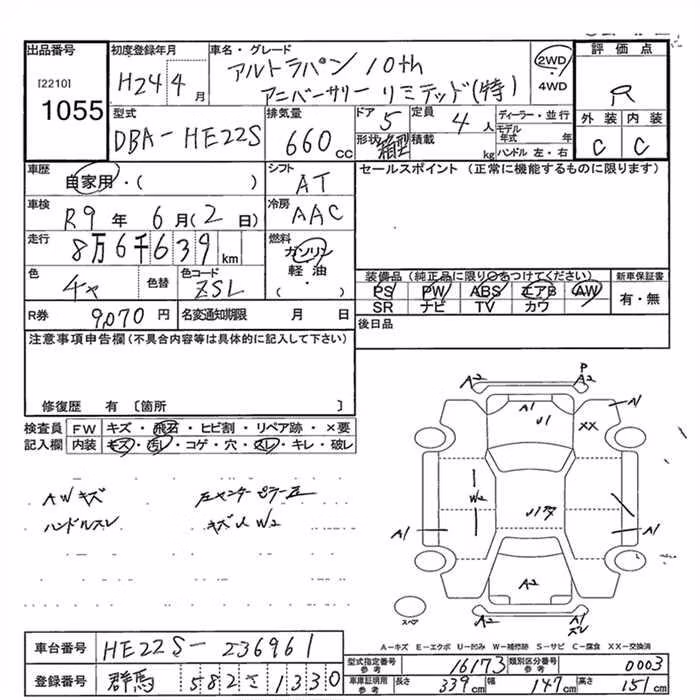 出品番号
[2210]
1055
初度登録年月
H24 4月
車名・グレード
アルトラパン 10th
アニバーサリー リミテッド(特)
2WD
4WD
評価点
R
外装 内装
C C
型式
DBA-HE22S
排気量
660cc
ドア 5
定員 4人
形状 箱型
積載 kg
ディーラー・並行
モデル年式 年
ハンドル 左・右
車歴
自家用・( )
シフト
AT
セールスポイント (正常に機能するものに限ります)
車検
R9年 6月(2日)
冷房
AAC
走行
8万6千639km
燃料
ガソリン
軽油
( )
色
チャ
色替
色コード
ZSL
装備品(純正品に限り○をつけてください)
PS PW ABS エアB AW
SR ナビ TV カワ
新車保証書
有・無
R券 9,070円
名変通知期限 月 日
後日品
注意事項申告欄(不具合内容等は具体的に記入して下さい)
修復歴 有 〔箇所 〕
検査員記入欄
FW キズ・飛石・ヒビ割・リペア跡・×要
内装 キズ・汚レ・コゲ・穴・スレ・キレ・破レ
AWキズ
ハンドルスレ
左センターピラー
キズ W2
A2
P
A2
A1
U1
A1
XX
W2
A1
A1
A2
A2
A1
スレ
スペア
A-キズ E-エクボ U-凹み W-補修跡 S-サビ C-腐食 XX-交換済
車台番号 HE22S-236961
登録番号 群馬 582 さ 1330
型式指定番号 参考 16173
類別区分番号 参考 0003
車庫証明用 参考 長さ 339cm 幅 147cm 高さ 151cm